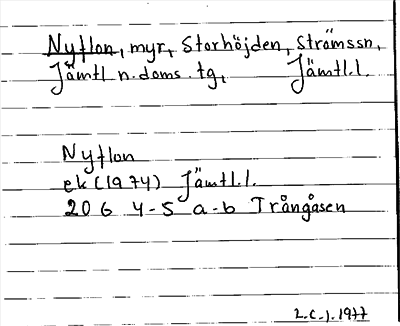 Nyflon, myr, Storhöjden, Strömssn,
Jämtl n. doms. tg, Jämtl.l.
Nyflon
ek (1974) Jämtl.l.
206 4-5 a-b Trångåsen
L.C.J. 1977